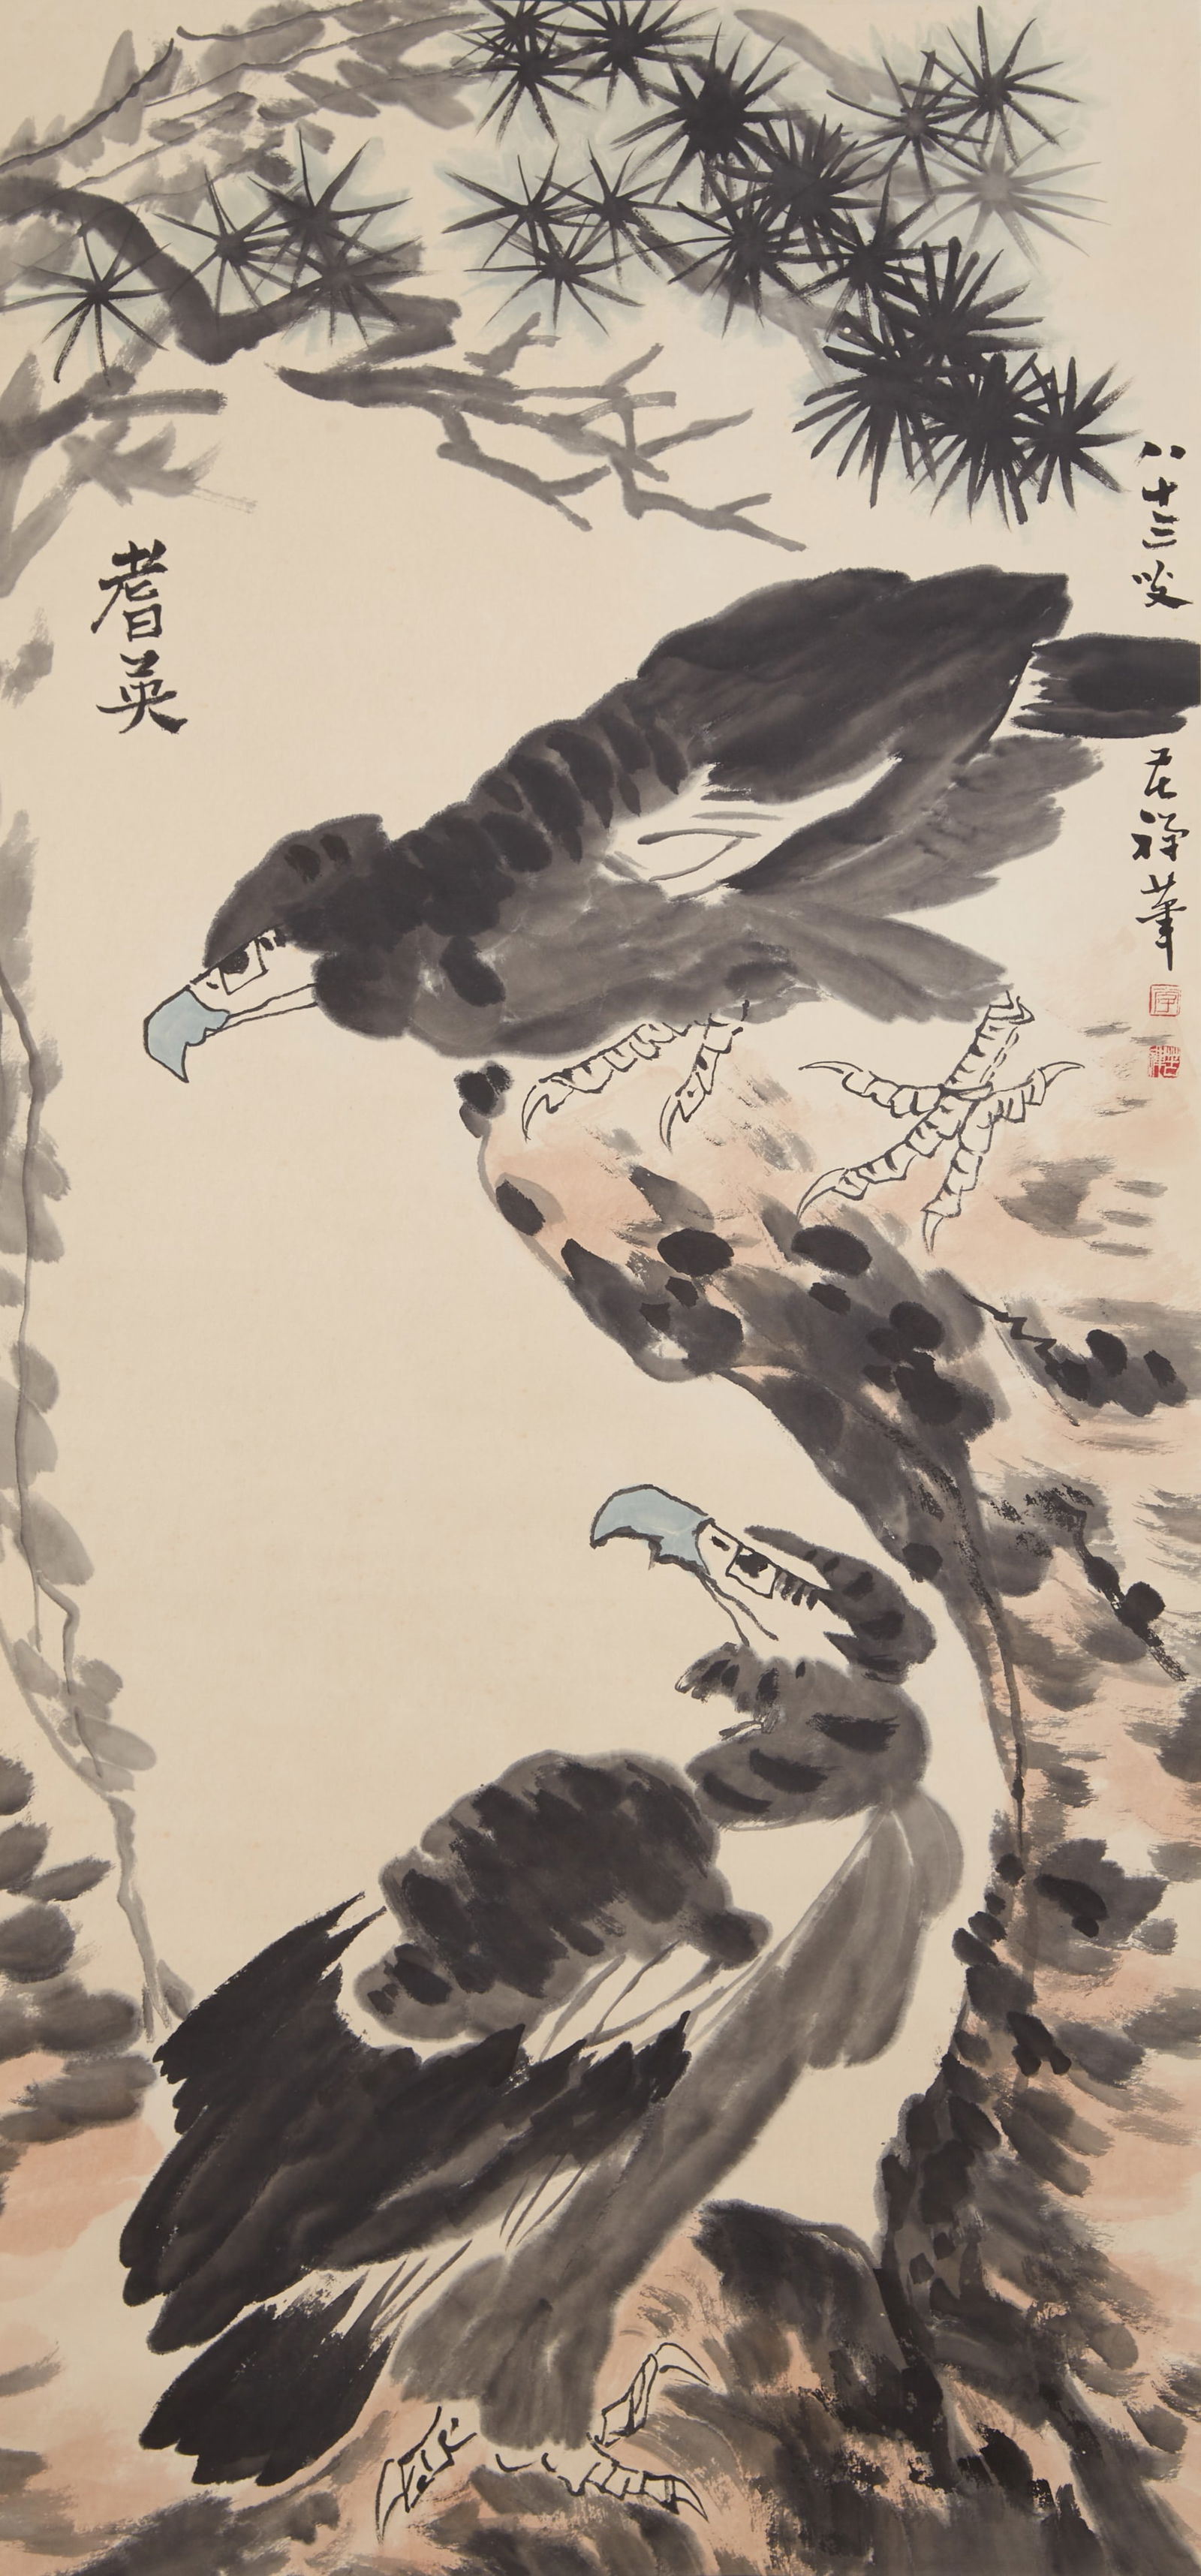 八十三叟
苦禪筆
李
苦禪
耆英